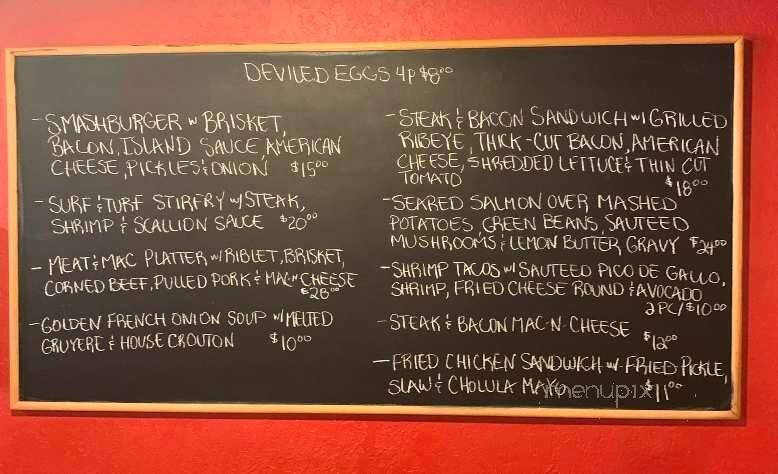 DEVILED EGGS 4P $8⁰⁰
- SMASHBURGER w BRISKET,
BACON, ISLAND SAUCE, AMERICAN
CHEESE, PICKLES & ONION $15⁰⁰
- SURF & TURF STIRFRY w/ STEAK,
SHRIMP & SCALLION SAUCE $20⁰⁰
- MEAT & MAC PLATTER w/ RIBLET, BRISKET,
CORNED BEEF, PULLED PORK & MAC-N-CHEESE
$28⁰⁰
- GOLDEN FRENCH ONION SOUP w/ MELTED
GRUYERE & HOUSE CROUTON $10⁰⁰
- STEAK & BACON SANDWICH w/ GRILLED
RIBEYE, THICK-CUT BACON, AMERICAN
CHEESE, SHREDDED LETTUCE & THIN CUT
TOMATO $18⁰⁰
- SEARED SALMON OVER MASHED
POTATOES, GREEN BEANS, SAUTEED
MUSHROOMS & LEMON BUTTER GRAVY $24⁰⁰
- SHRIMP TACOS w/ SAUTEED PICO DE GALLO,
SHRIMP, FRIED CHEESE ROUND & AVOCADO
2PC/$10⁰⁰
- STEAK & BACON MAC-N-CHEESE
$12⁰⁰
- FRIED CHICKEN SANDWICH w/ FRIED PICKLE,
SLAW & CHOLULA MAYO $11⁰⁰
menupix